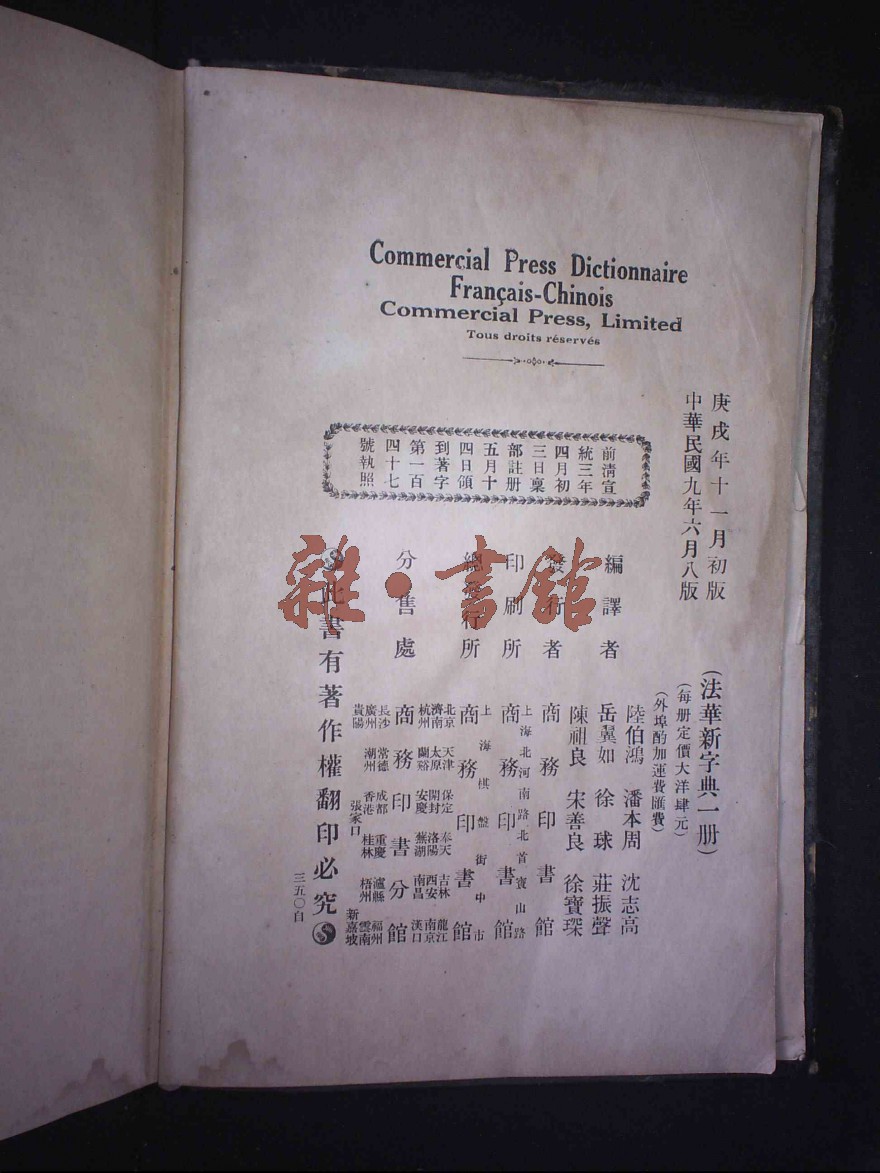 Commercial Press Dictionnaire
Français-Chinois
Commercial Press, Limited
Tous droits réservés
庚戌年十一月初版
中華民國九年六月八版
前清宣
統三年
四月初
三日稟
部註册
五月十
四日領
到著字
第一百
四十七
號執照
(法華新字典一册)
(每册定價大洋肆元)
(外埠酌加運費匯費)
編譯者
陸伯鴻 潘本周 沈志高
岳翼如 徐球 莊振聲
陳祖良 宋善良 徐寶琛
發行者 商務印書館
印刷所 上海北河南路北首寶山路
商務印書館
總發行所 上海棋盤街中市
商務印書館
分售處
北京 天津 保定 奉天 吉林 龍江
濟南 太原 開封 洛陽 西安 南京
杭州 蘭谿 安慶 蕪湖 南昌 漢口
商務印書分館
長沙 常德 成都 重慶 瀘縣 福州
廣州 潮州 香港 桂林 梧州 雲南
貴陽 張家口 新嘉坡
此書有著作權翻印必究
三五〇自
雜·書館